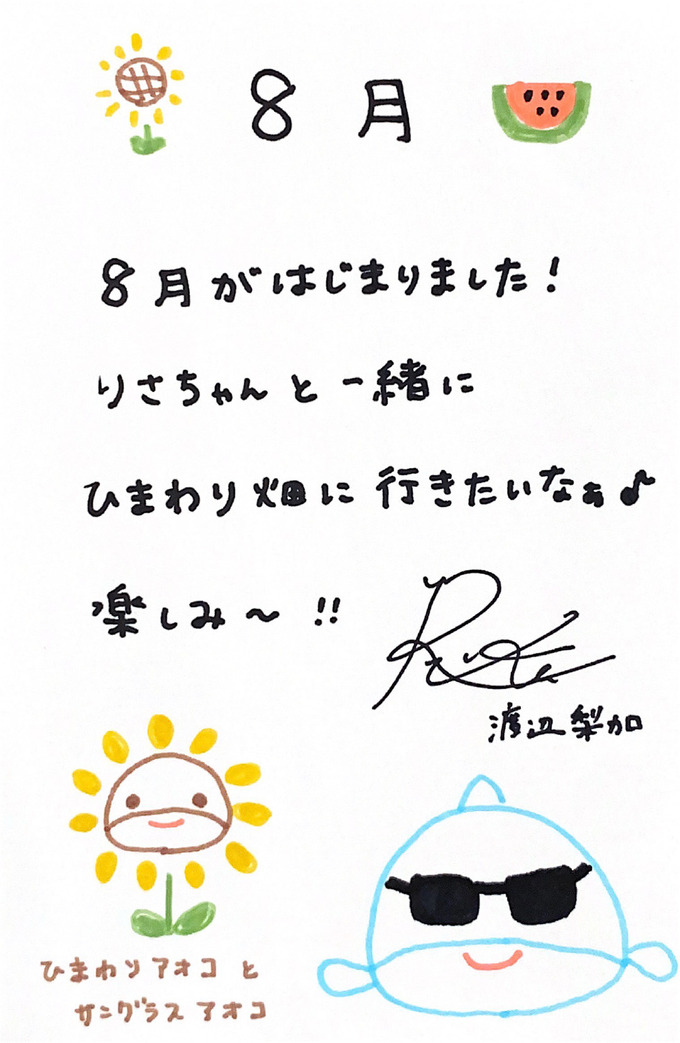 8月
8月がはじまりました!
りさちゃんと一緒に
ひまわり畑に行きたいなぁ♪
楽しみ〜!!
Rika
渡辺梨加
ひまわりアオコと
サングラスアオコ